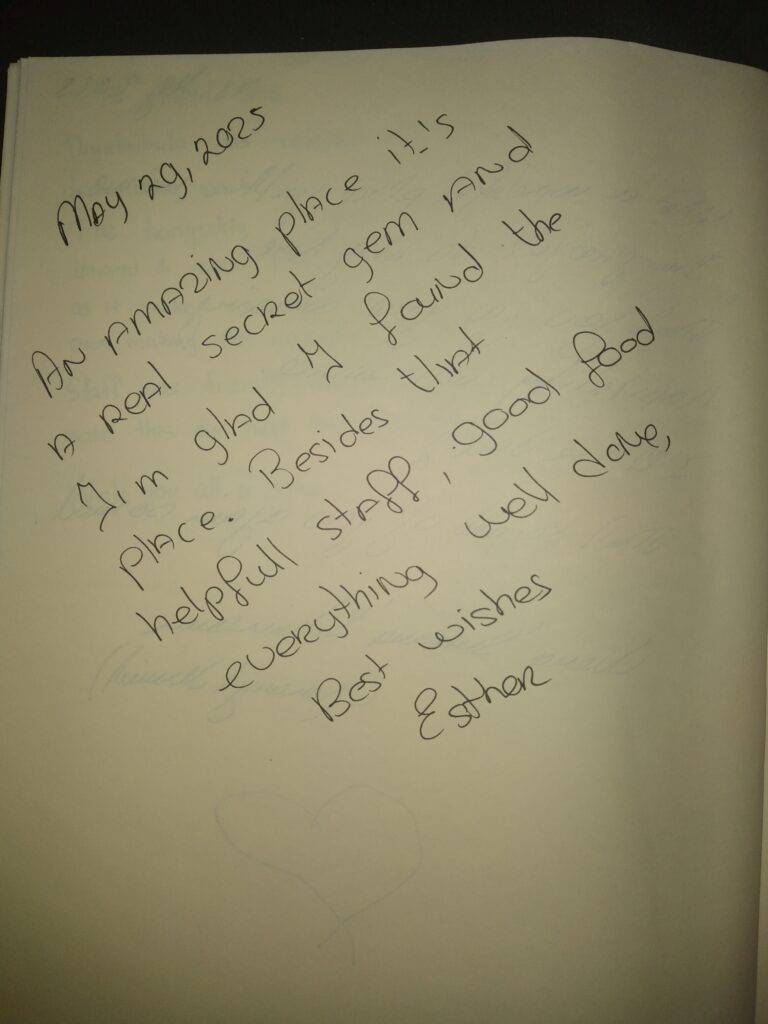 May 29, 2025
An amazing place it's
a real secret gem and
I'm glad I found the
place. Besides that
helpfull staff, good food
everything well done,
Best wishes
Esther